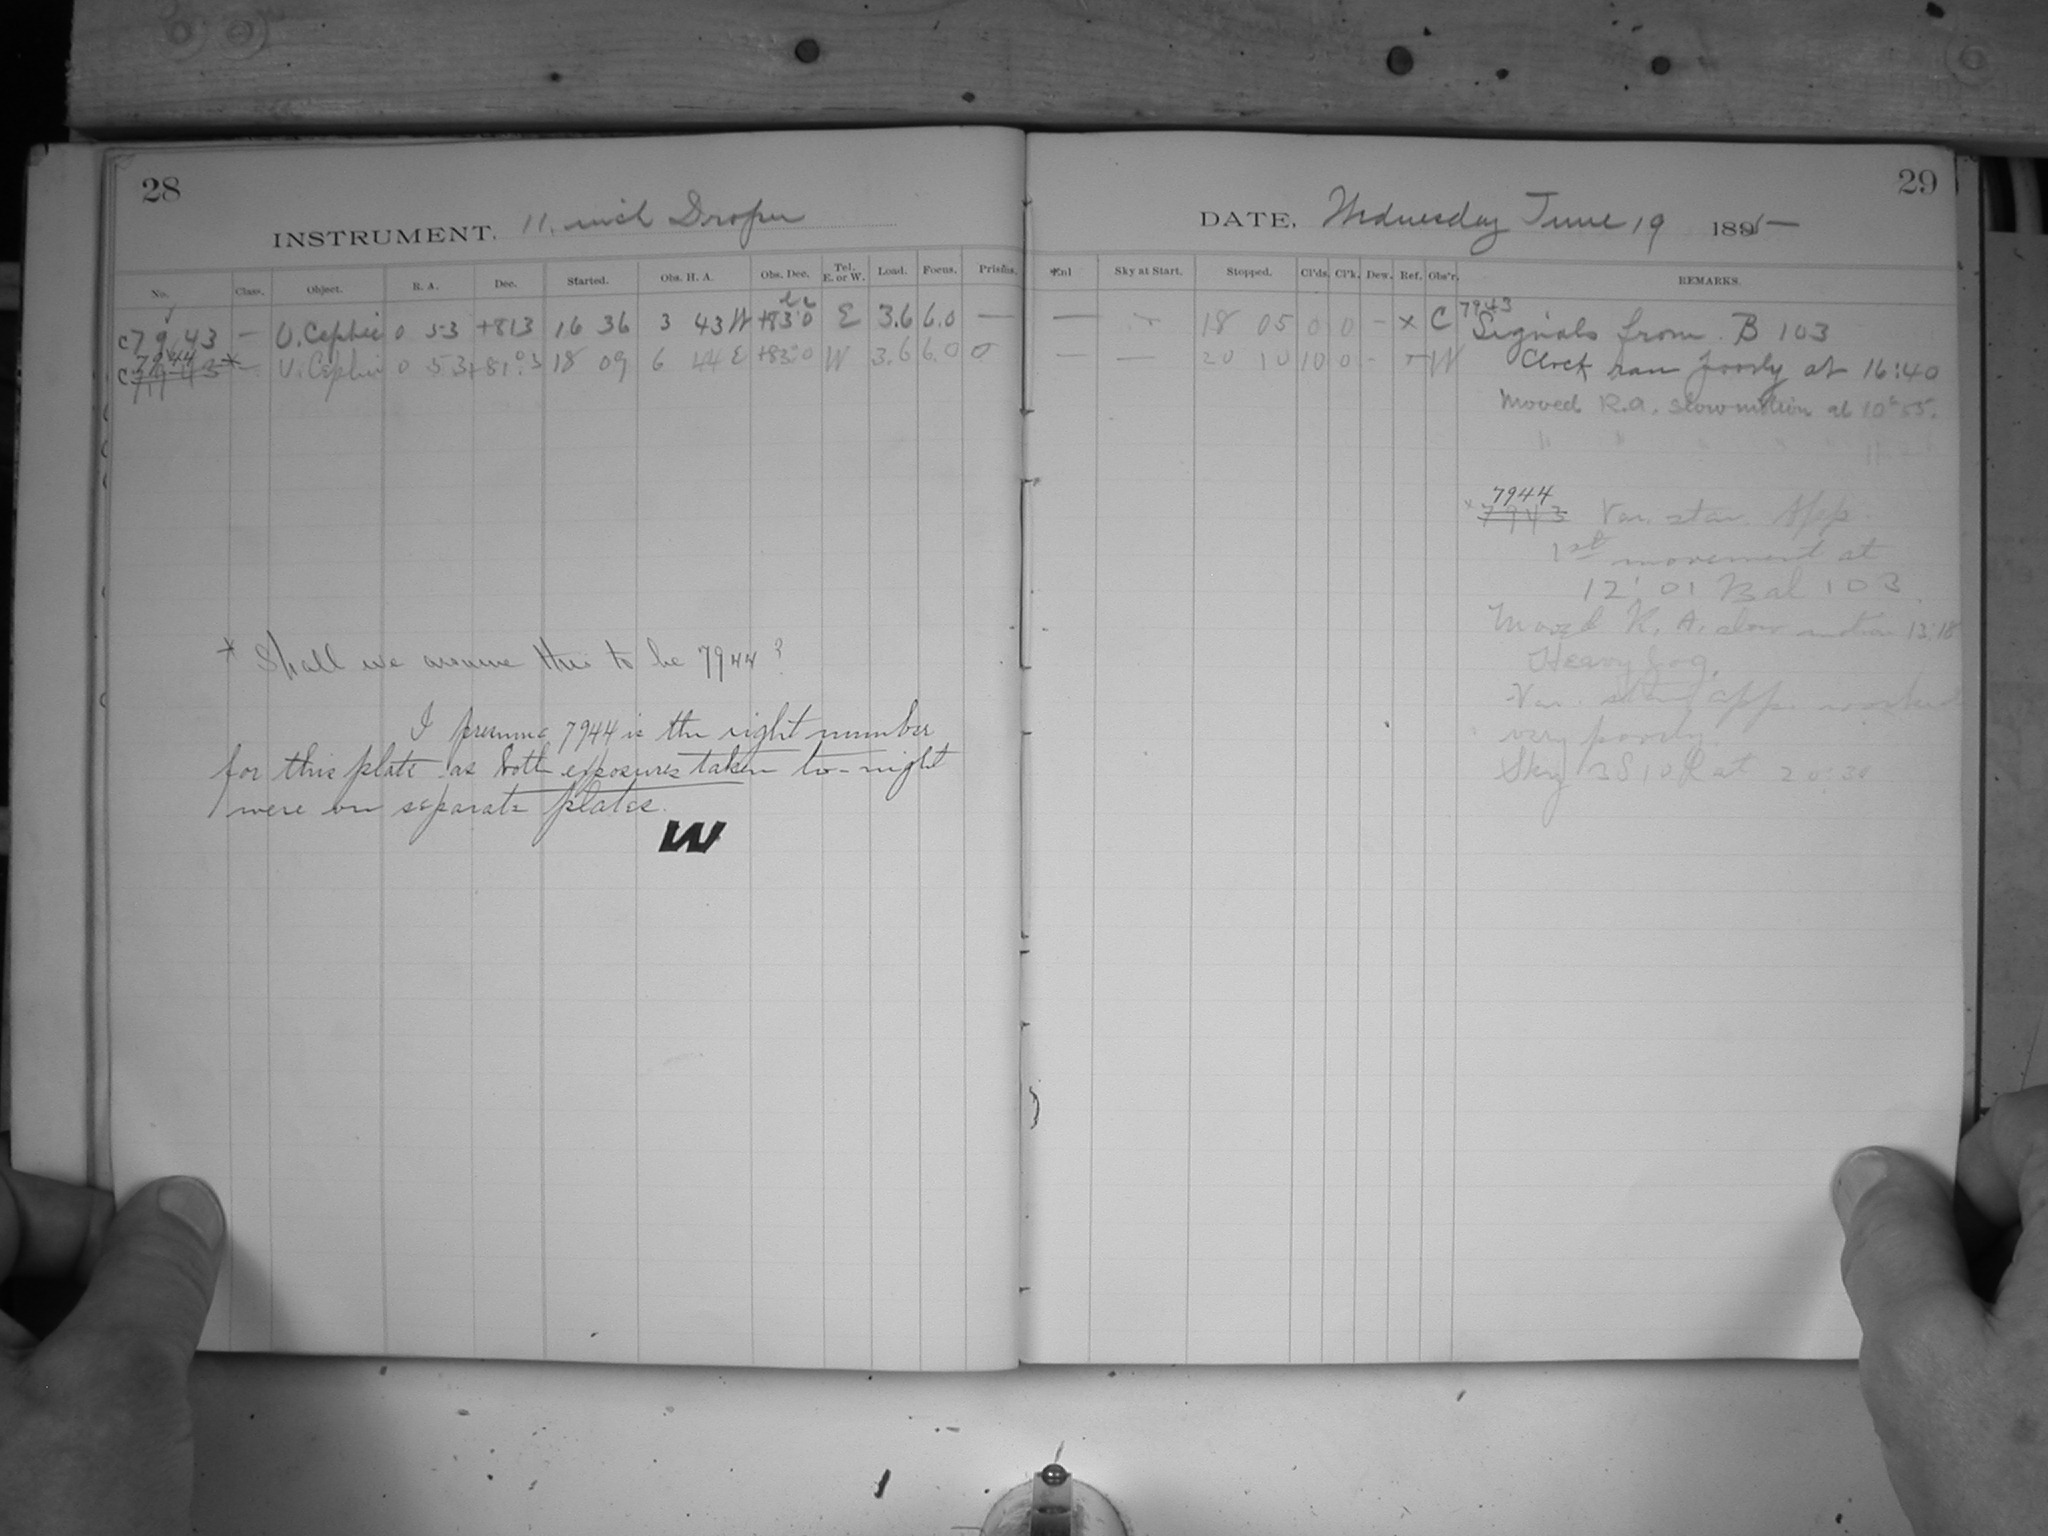 28
INSTRUMENT. 11 inch Draper
No. Class. Object. R. A. Dec. Started. Obs. H. A. Obs. Dec. Tel. E. or W. Load. Focus. Prisms.
C7943 — U. Cephei 0 53 +813 16 36 3 43 W +83°0 E 3.6 6.0 —
7944
C7943* — U. Cephei 0 53 +81°3 18 09 6 44 E +83°0 W 3.6 6.0 0
* Shall we assume this to be 7944?
I presume 7944 is the right number
for this plate as both exposures taken to-night
were on separate plates.
W
29
DATE, Wednesday June 19 1895
Enl Sky at Start. Stopped. Cl'ds. Cl'k. Dew. Ref. Obs'r. REMARKS.
— 18 05 0 0 - x C 7943
Signals from B 103
— — 20 10 10 0 - W Clock ran poorly at 16:40
Moved R.A. slow motion at 10h 55.
" " " " "
7944
* 7943 Var. star App.
1st movement at
12:01 Bal 103
Moved R. A. slow motion 13:18
Heavy fog.
Var. star app. worked
very poorly.
Sky at 20:30